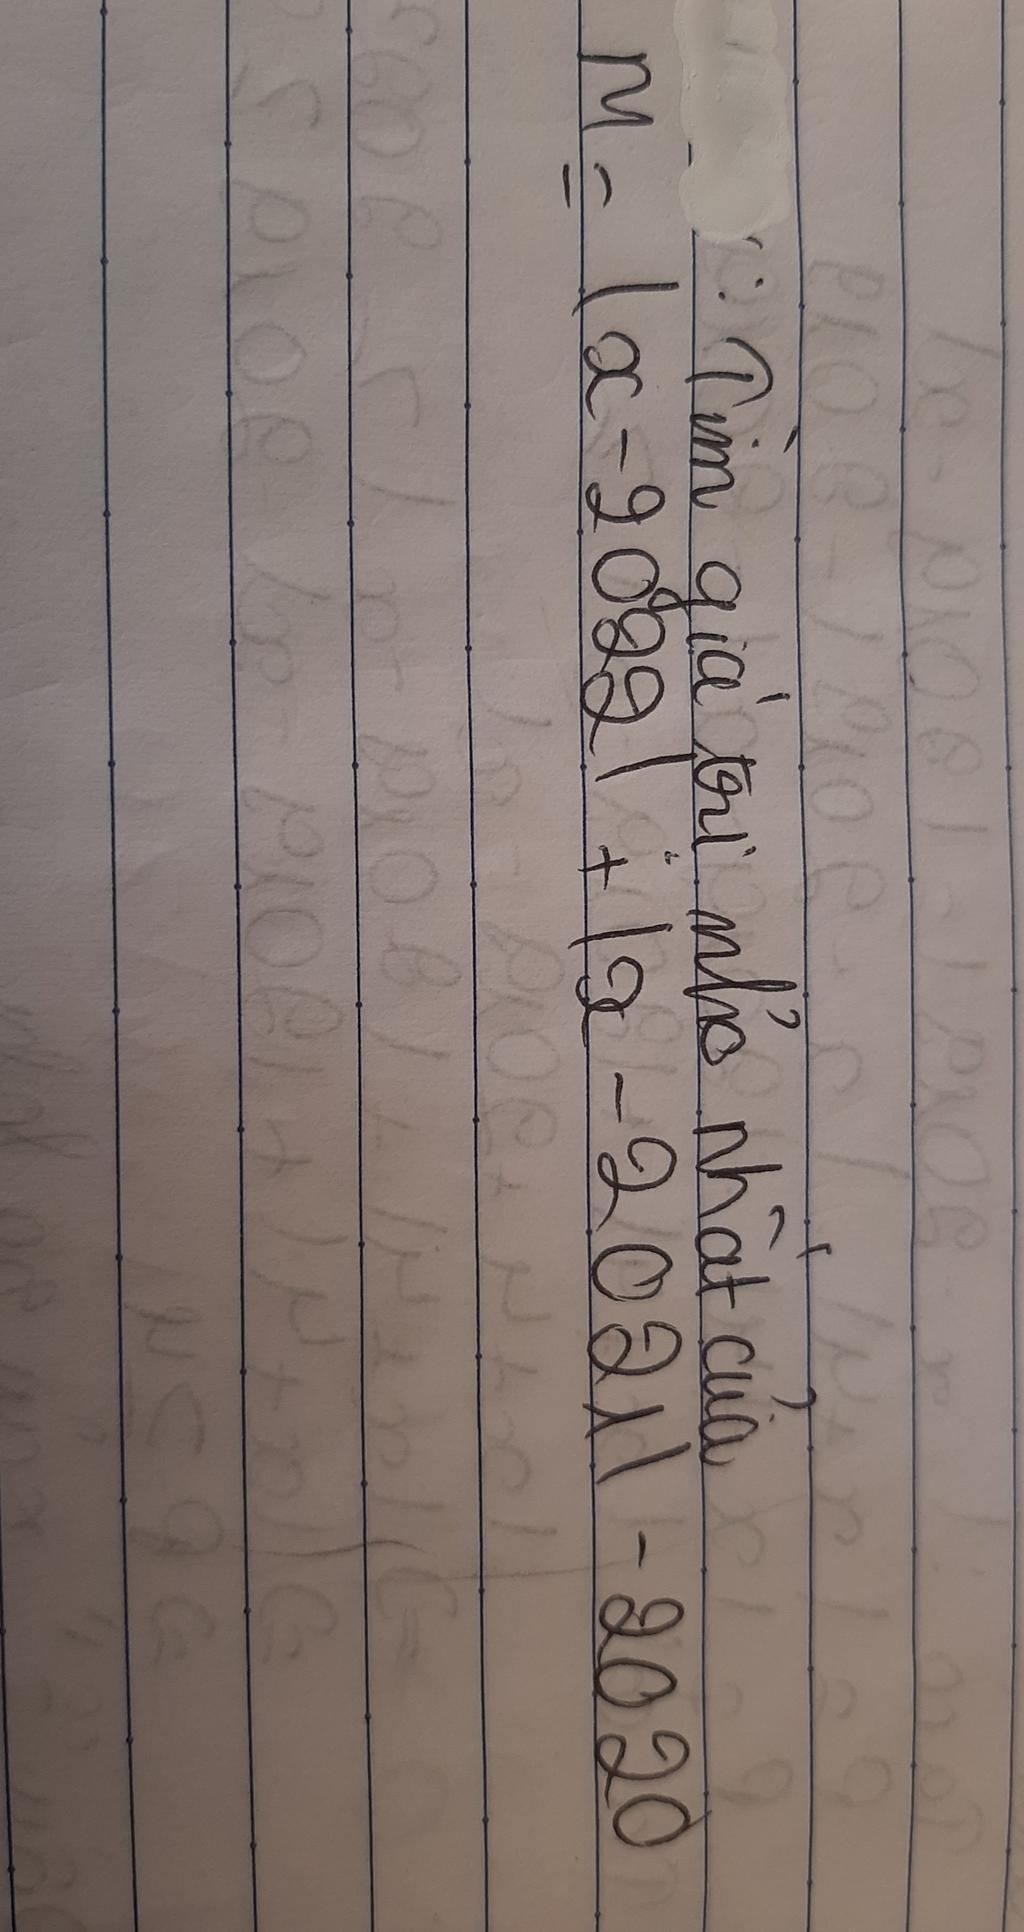 : Tìm giá trị nhỏ nhất của
M = |x - 2022| + |x - 2021| - 2020